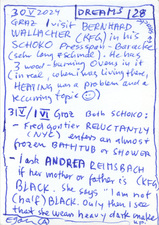 30.V.2024 DREAMS /28
GRAZ I visit BERNHARD
WALLACHER (KFG) in his
SCHOKO Pressspan-Baracke
(sehr klein + schmal). He has
3 wood-burning ovens in it
(in real, when I was living there,
HEATING was a problem and a
recurring topic 🙂)
31/V /VI GRAZ Both SCHOKO:
- Fred goutier RELUCTANTLY
(NYC) enters an almost
frozen BATHTUB or SHOWER
- I ask ANDREA REIMSBACH
if her mother or father is (KFG)
BLACK. She says "I am not
(half) BLACK. Only then I see
that she wears heavy dark make
up.